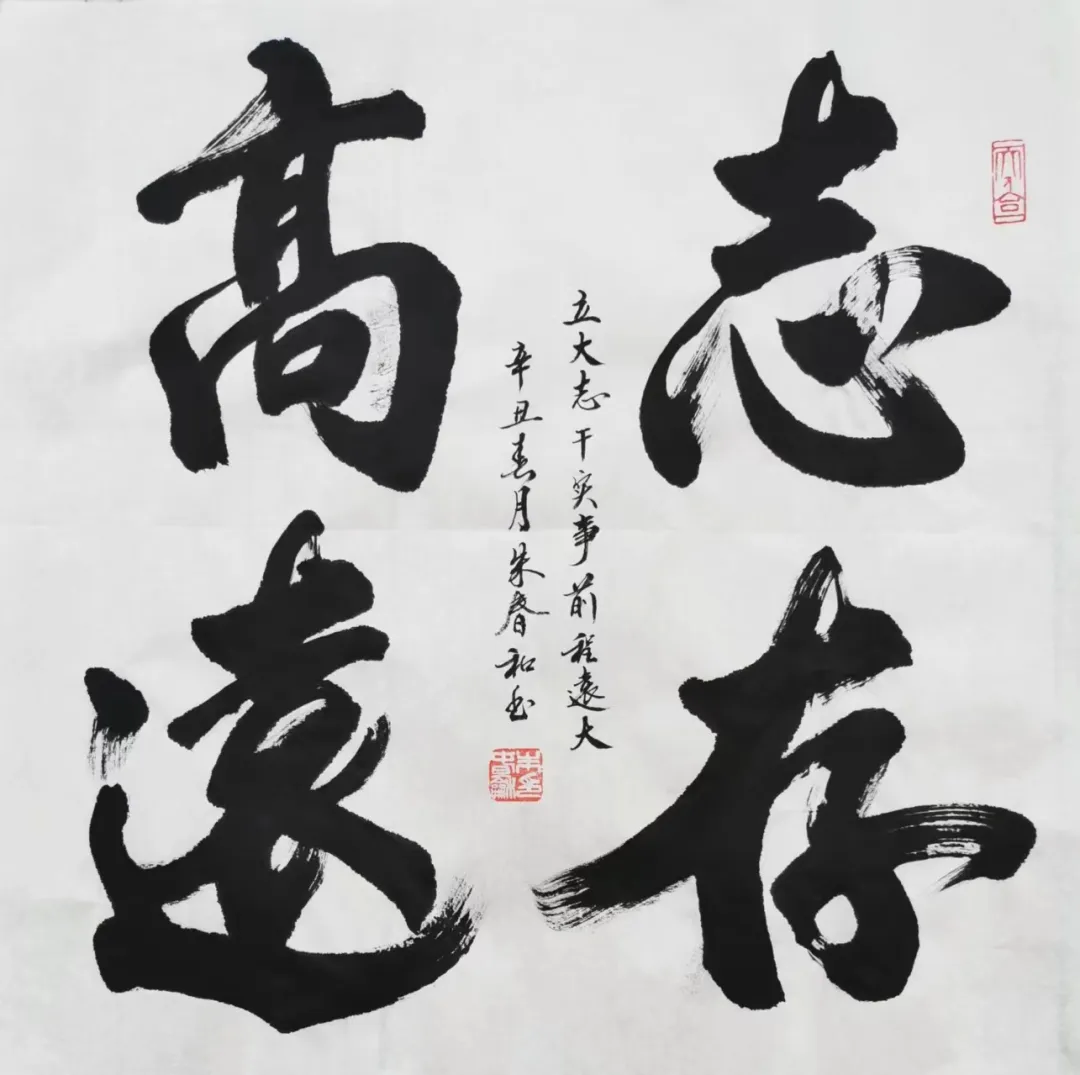 志存
高遠
立大志干实事前程遠大
辛丑春月朱春和书